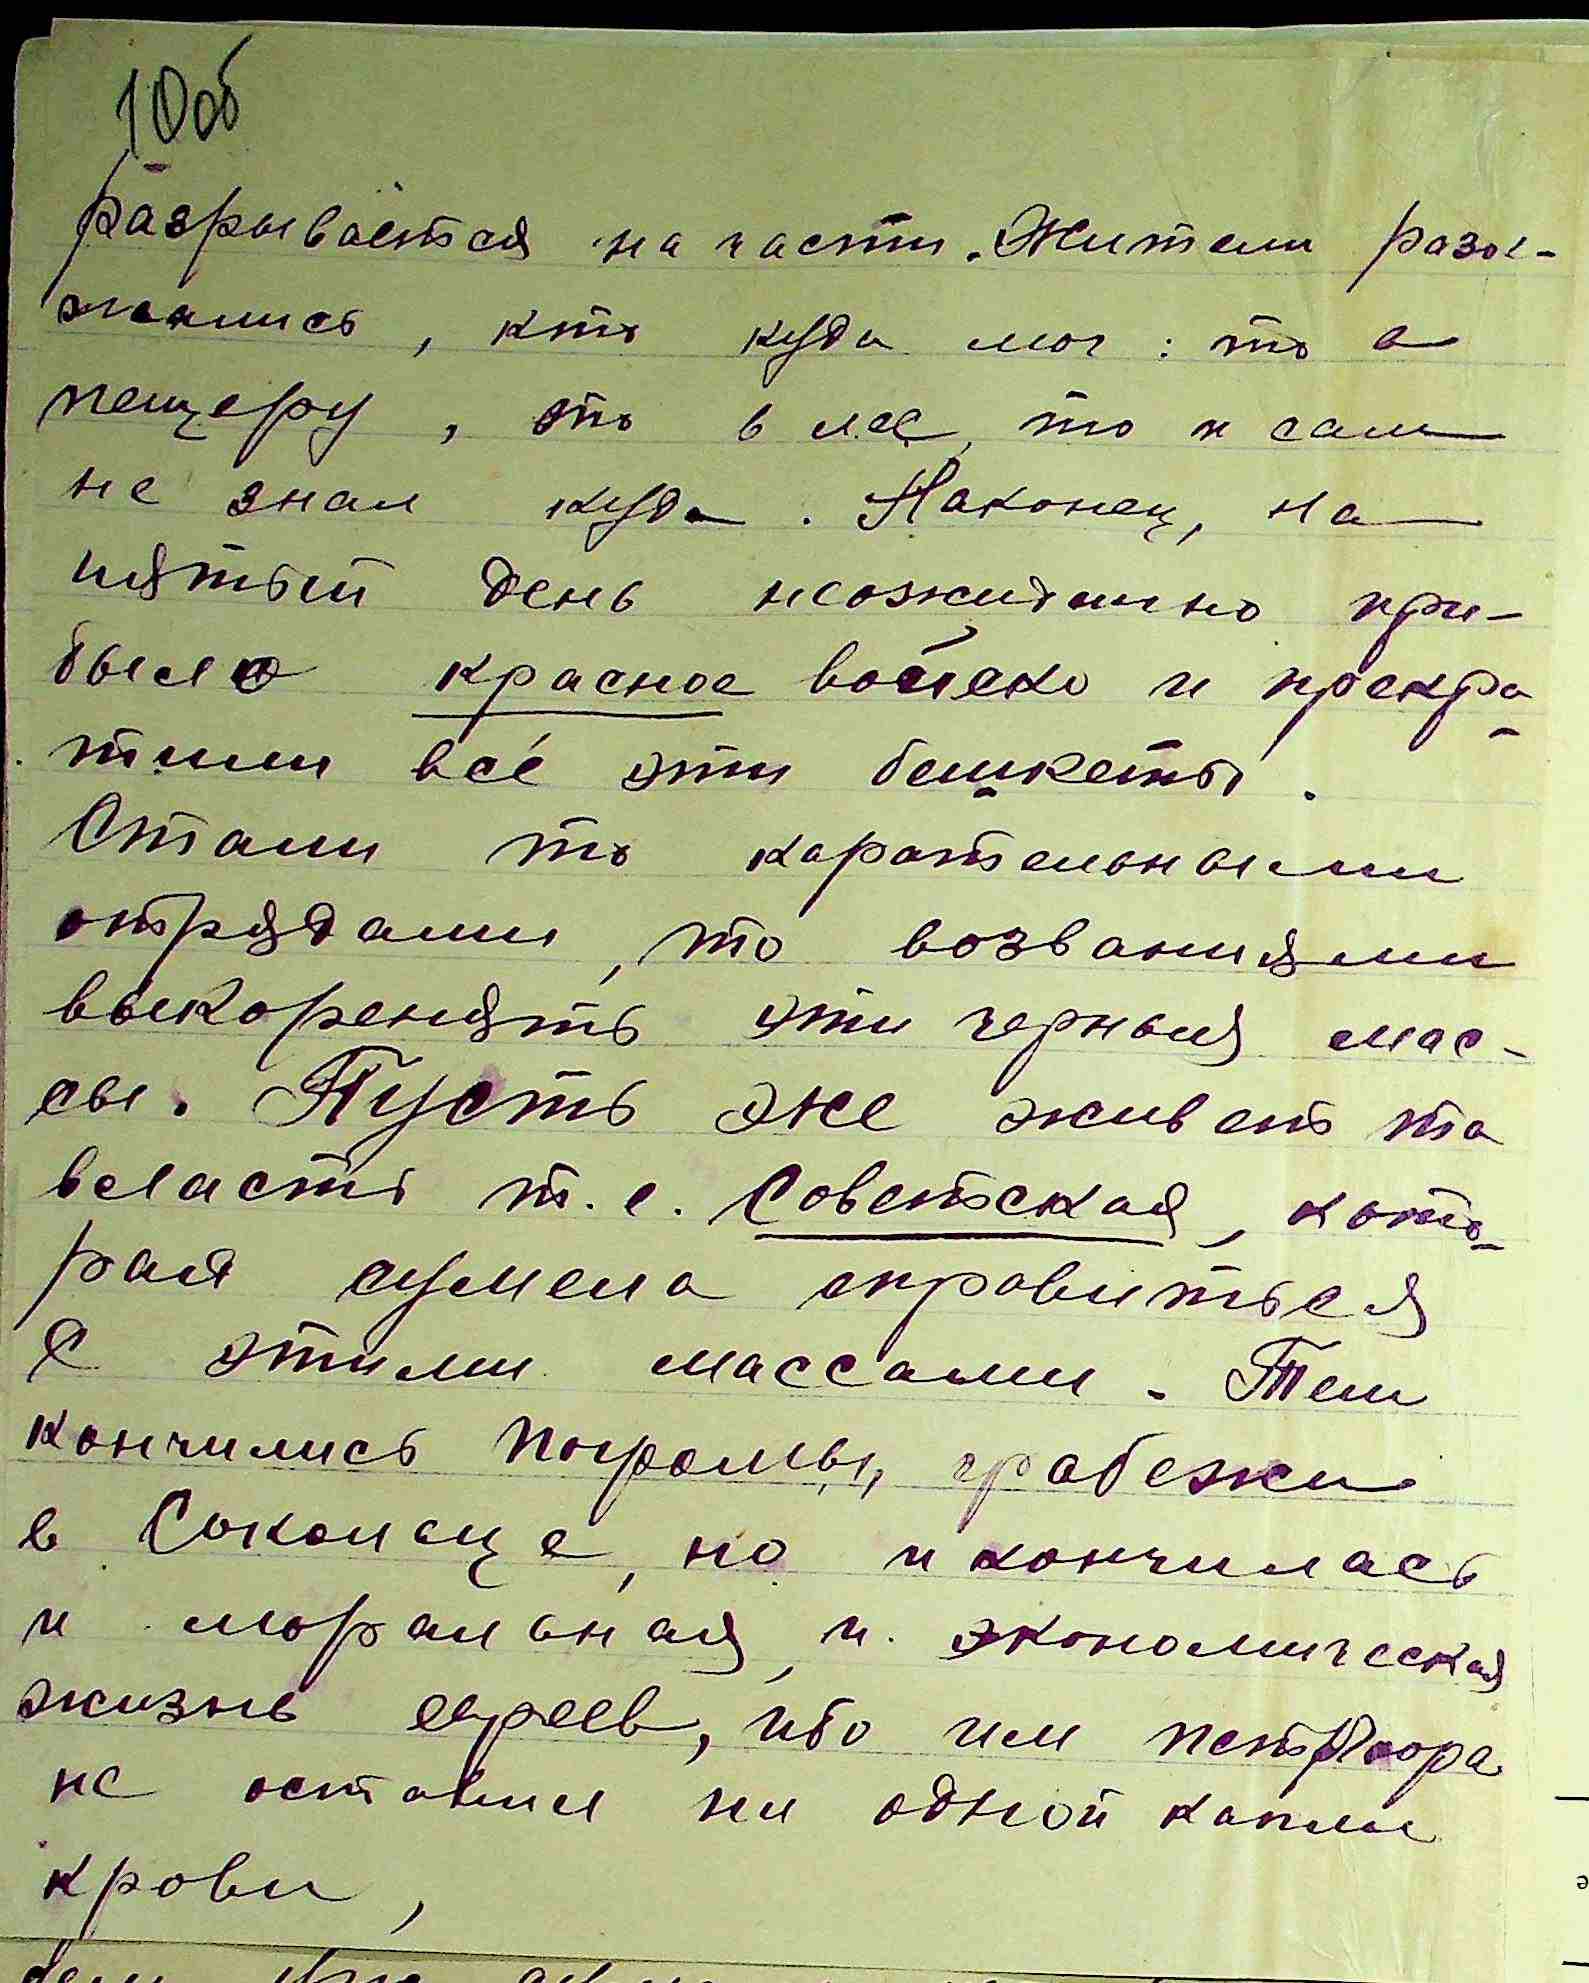 10об
разрывается на части. Жители разбе-
жались, кто куда мог: то в
пещеру, то в лес, то и сам
не знал куда. Наконец, на
пятый день неожиданно при-
было красное войско и прекра-
тили все эти бешкеты.
Стали то карательными
отрядами, то возваниями
выкоренять эти черныя мас-
сы. Пусть же живет та
власть т.е. Советская, кото-
рая сумела справиться
с этими массами. Тем
кончились погромы, грабежи
в Соколеце, но и кончилась
и моральная, и экономическая
жизнь евреев, ибо им
не оставил ни одной капли
крови,